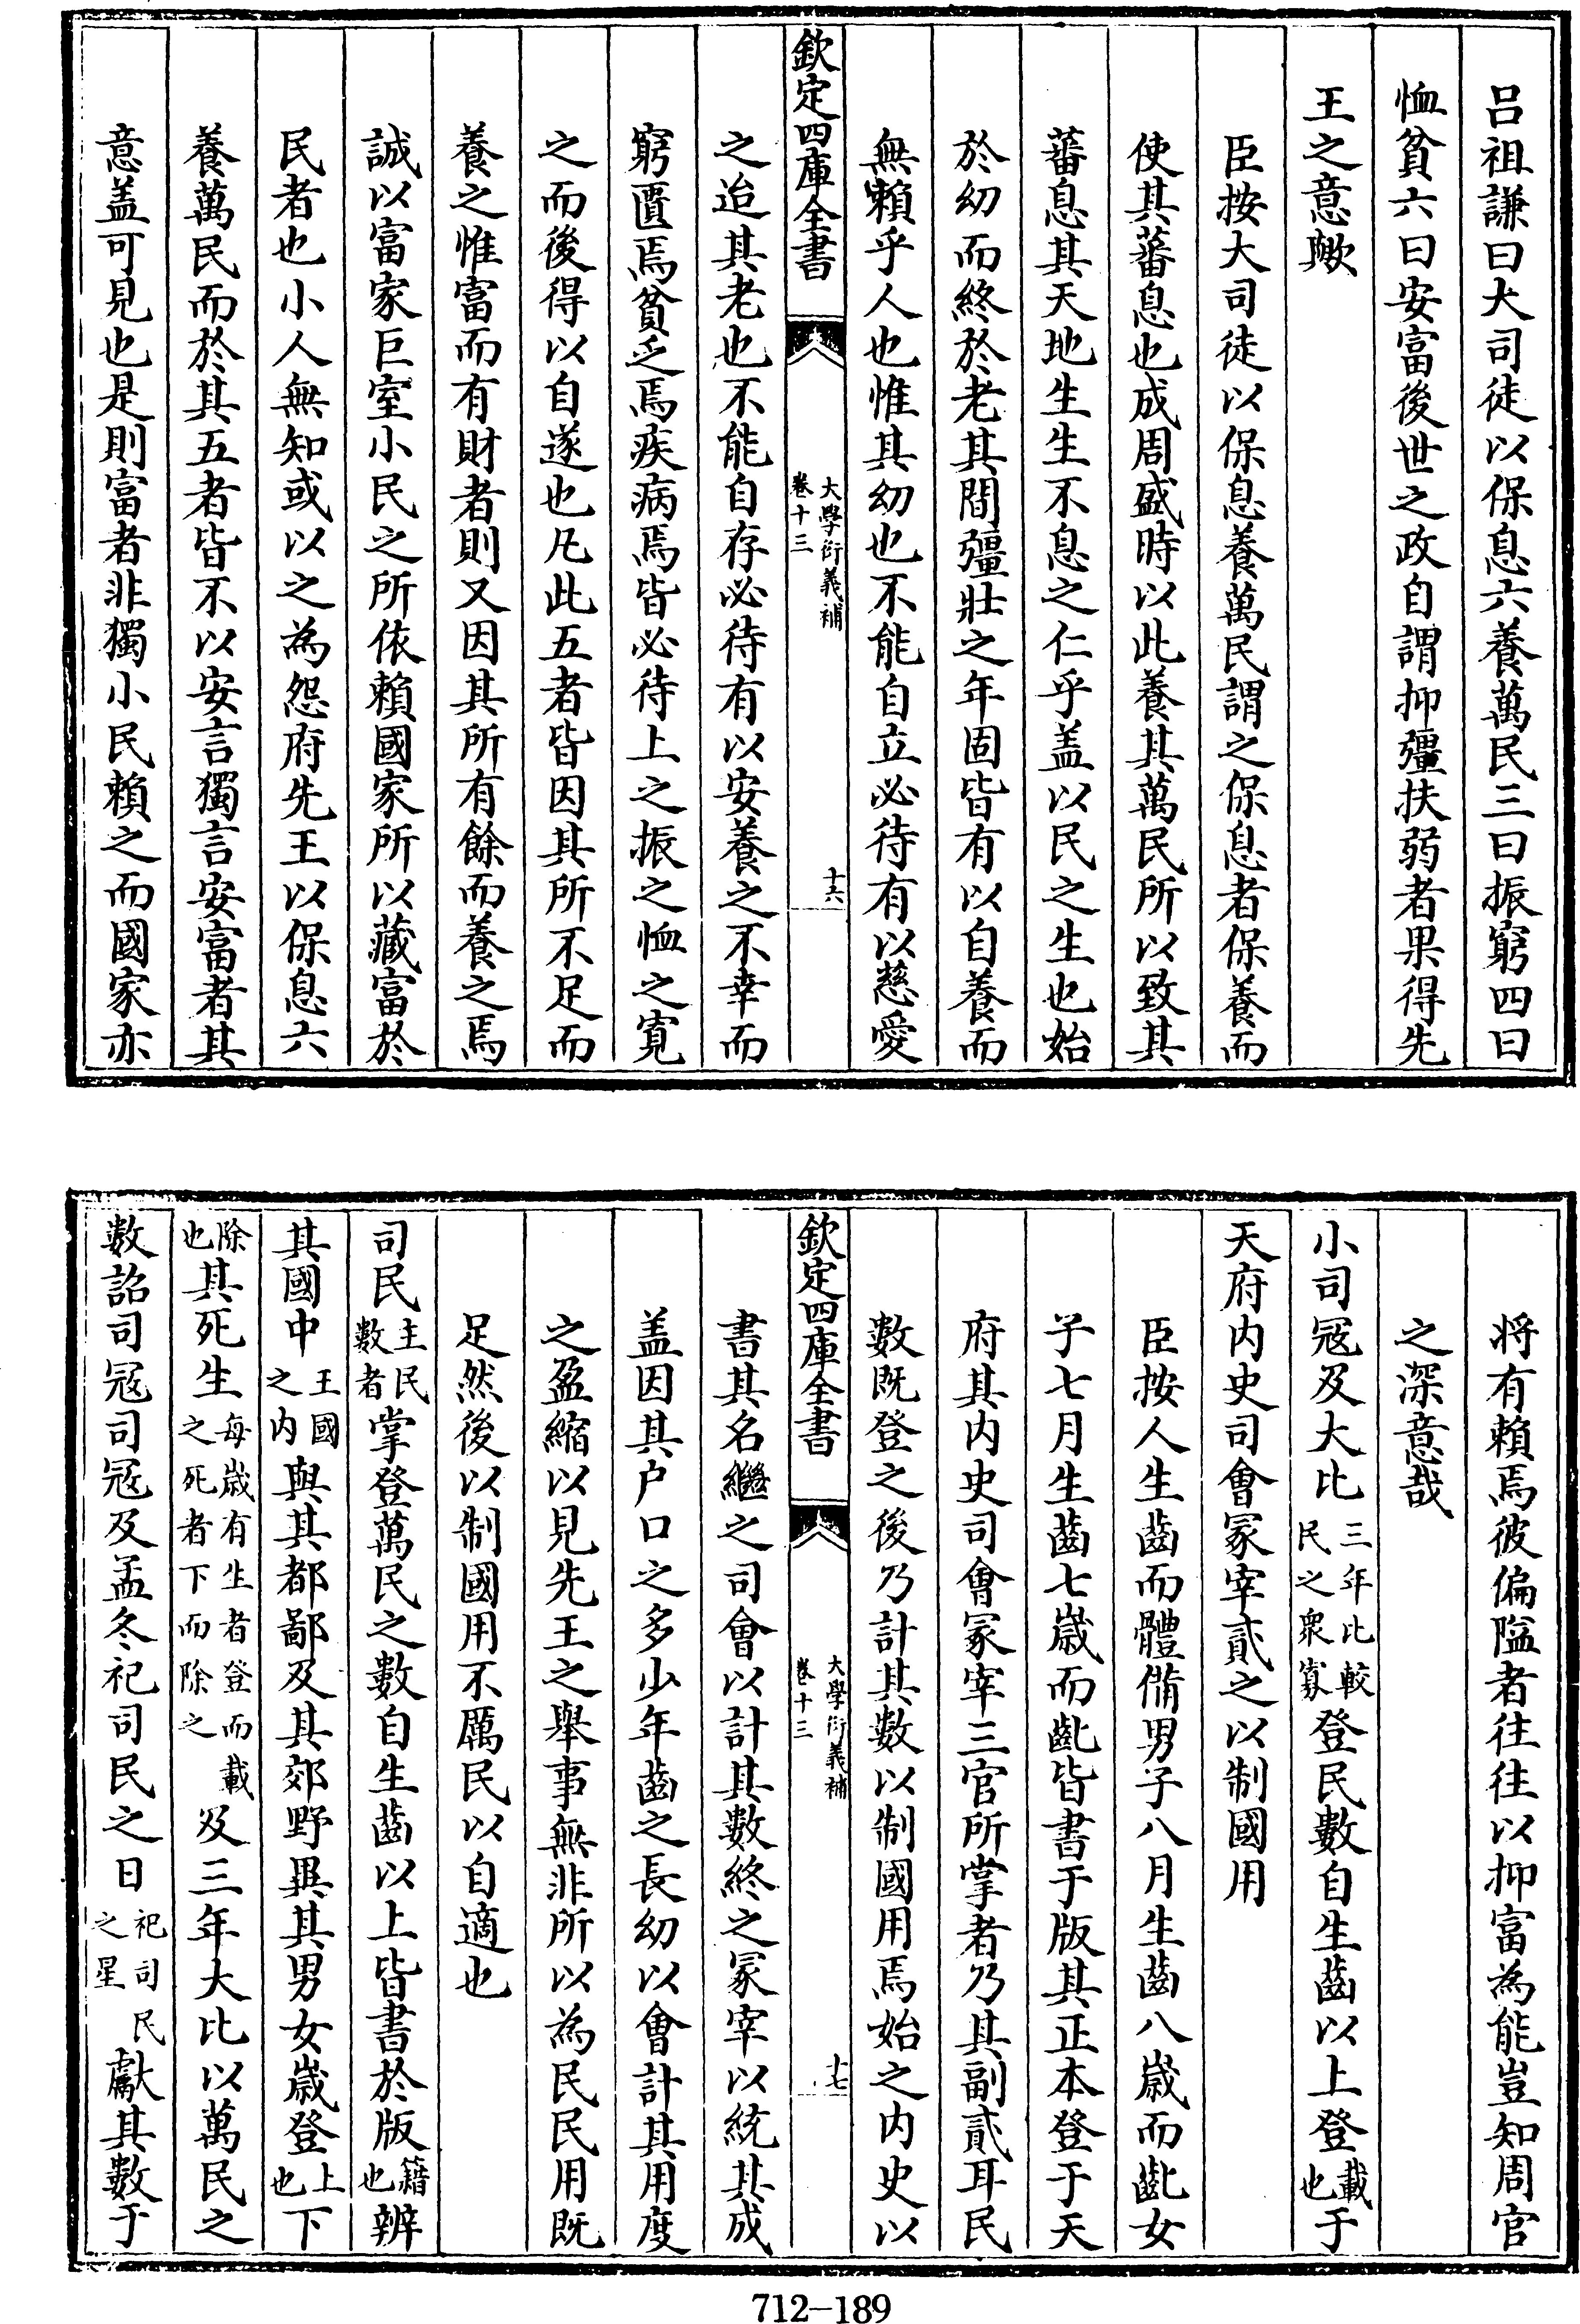 呂祖謙曰大司徒以保息六養萬民三曰振窮四曰
恤貧六曰安富後世之政自謂抑彊扶弱者果得先
王之意歟
臣按大司徒以保息養萬民謂之保息者保養而
使其蕃息也成周盛時以此養其萬民所以致其
蕃息其天地生生不息之仁乎盖以民之生也始
於幼而終於老其間彊壯之年固皆有以自養而
無賴乎人也惟其幼也不能自立必待有以慈愛
欽定四庫全書
大學衍義補
卷十三
十六
之迨其老也不能自存必待有以安養之不幸而
窮匱焉貧乏焉疾病焉皆必待上之振之恤之寛
之而後得以自遂也凡此五者皆因其所不足而
養之惟富而有財者則又因其所有餘而養之焉
誠以富家巨室小民之所依賴國家所以藏富於
民者也小人無知或以之為怨府先王以保息六
養萬民而於其五者皆不以安言獨言安富者其
意盖可見也是則富者非獨小民賴之而國家亦
將有賴焉彼偏隘者往往以抑富為能豈知周官
之深意哉
小司冦及大比三年比較民之衆寡登民數自生齒以上登載也于
天府内史司會冡宰貳之以制國用
臣按人生齒而體備男子八月生齒八歲而齔女
子七月生齒七歲而齔皆書于版其正本登于天
府其内史司會冡宰三官所掌者乃其副貳耳民
數既登之後乃計其數以制國用焉始之内史以
欽定四庫全書
大學衍義補
卷十三
十七
書其名繼之司會以計其數終之冡宰以統其成
盖因其户口之多少年齒之長幼以會計其用度
之盈縮以見先王之舉事無非所以為民民用既
足然後以制國用不厲民以自適也
司民主民數者掌登萬民之數自生齒以上皆書於版籍也辨
其國中王國之内與其都鄙及其郊野異其男女歲登上也下
除也其死生每歲有生者登而載之死者下而除之及三年大比以萬民之
數詔司冦司冦及孟冬祀司民之日祀司民之星獻其數于
712-189